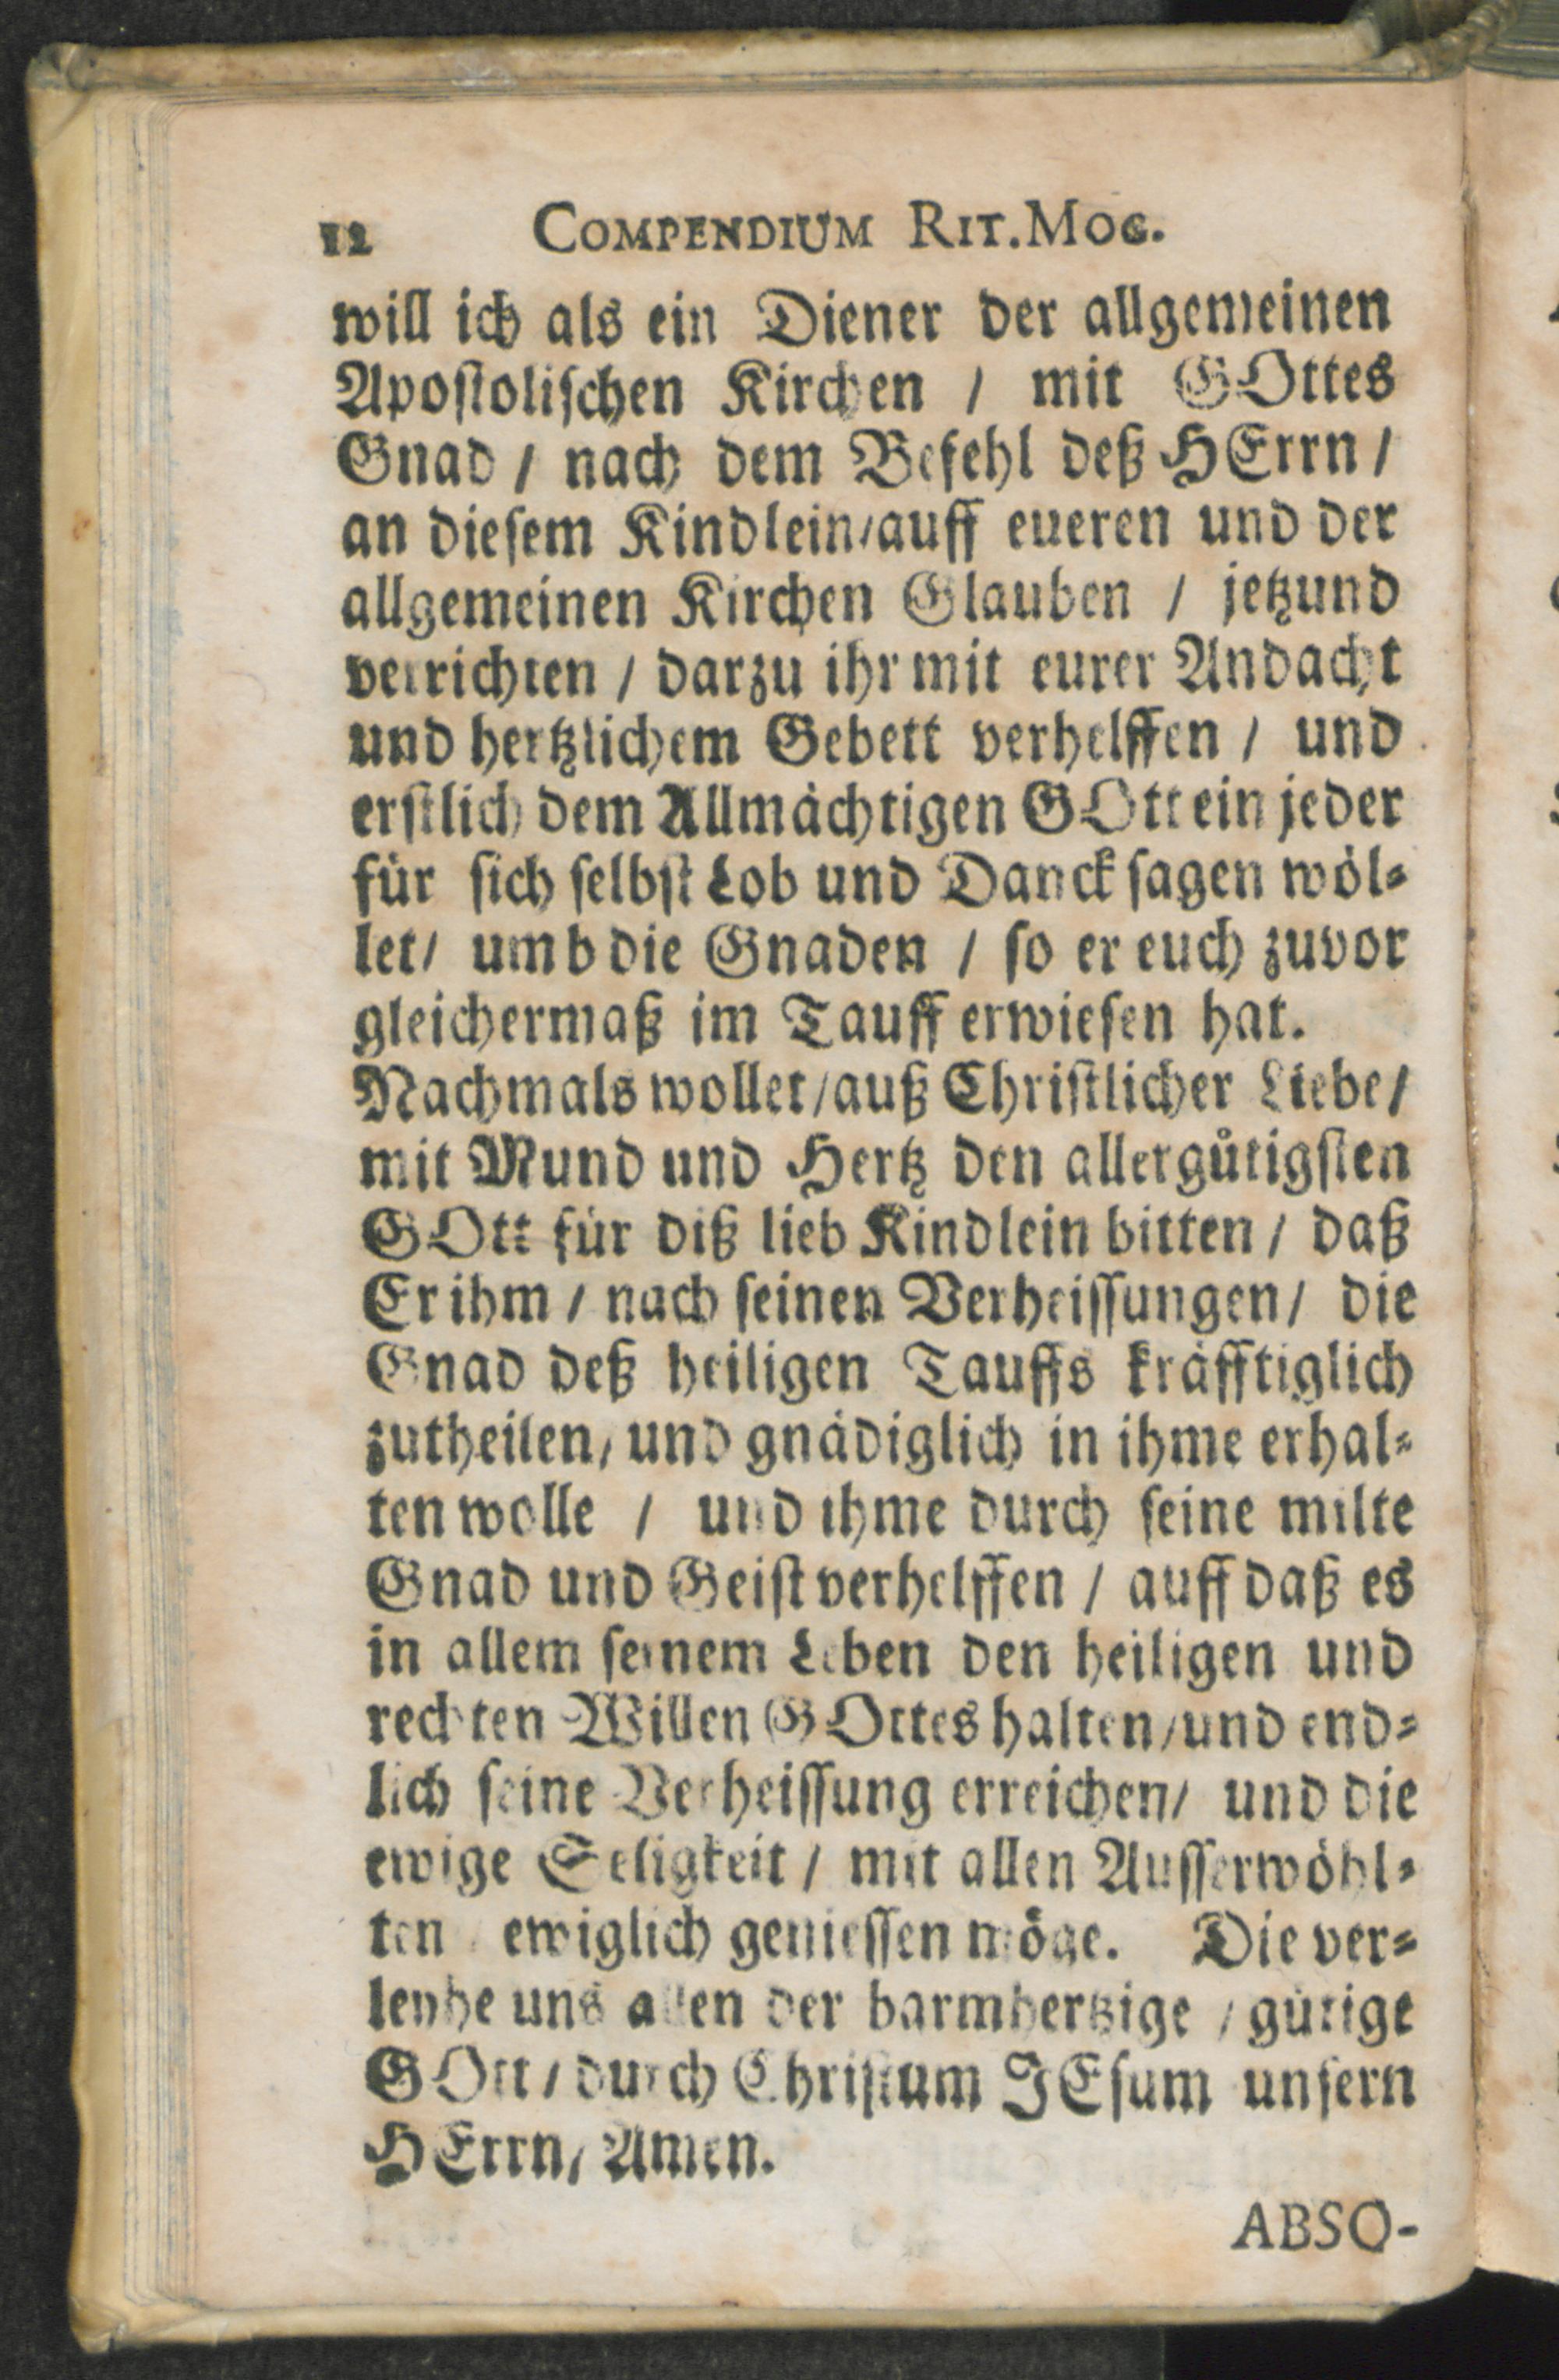 12 COMPENDIUM RIT. MOG.
will ich als ein Diener der allgemeinen
Apostolischen Kirchen / mit GOttes
Gnad / nach dem Befehl deß HErrn /
an diesem Kindlein / auff eueren und der
allgemeinen Kirchen Glauben / jetzund
verrichten / darzu ihr mit eurer Andacht
und hertzlichem Gebett verhelffen / und
erstlich dem Allmächtigen GOtt ein jeder
für sich selbst Lob und Danck sagen wöl-
let / umb die Gnaden / so er euch zuvor
gleichermaß im Tauff erwiesen hat.
Nachmals wollet / auß Christlicher Liebe /
mit Mund und Hertz den allergütigsten
GOtt für diß lieb Kindlein bitten / daß
Er ihm / nach seinen Verheissungen / die
Gnad deß heiligen Tauffs kräfftiglich
zutheilen / und gnädiglich in ihme erhal-
ten wolle / und ihme durch seine milte
Gnad und Geist verhelffen / auff daß es
in allem seinem Leben den heiligen und
rechten Willen GOttes halten / und end-
lich seine Verheissung erreichen / und die
ewige Seligkeit / mit allen Ausserwöhl-
ten ewiglich geniessen möge. Die ver-
leyhe uns allen der barmhertzige / gütige
GOtt / durch Christum JEsum unsern
HErrn / Amen.
ABSO-